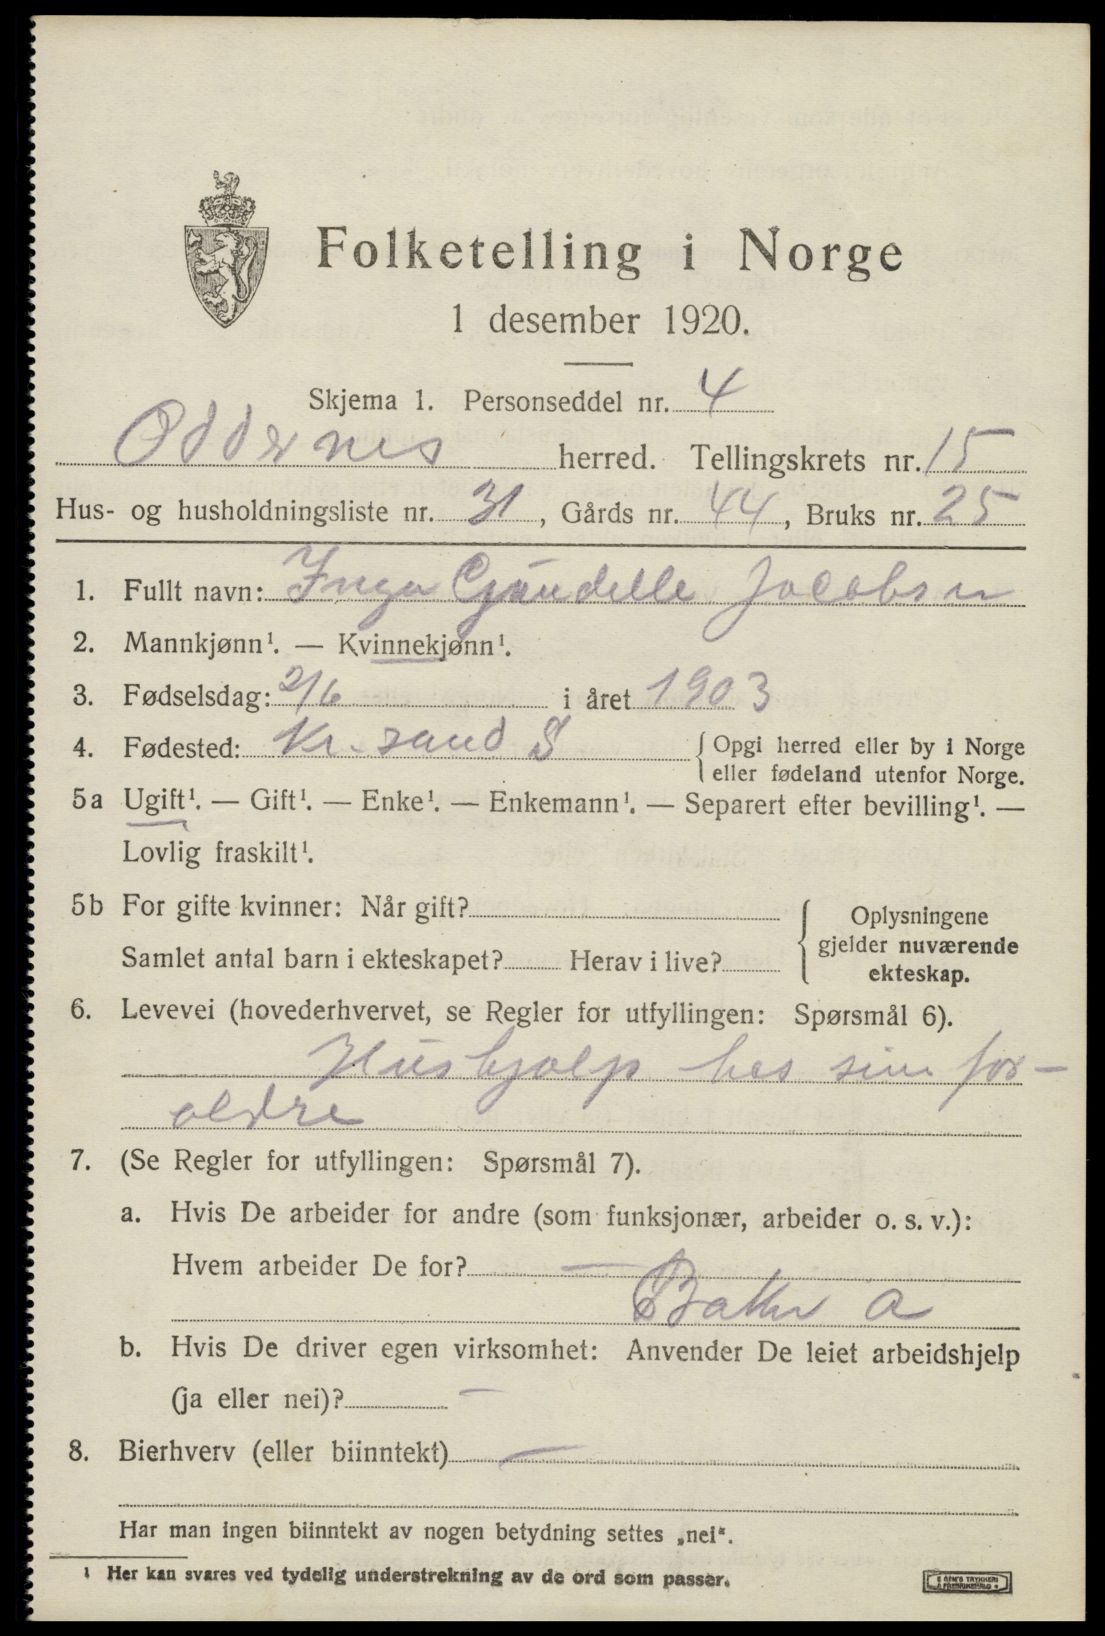 Folketelling i Norge
1 desember 1920.
Skjema 1. Personseddel nr. 4
Oddernes herred. Tellingskrets nr. 15
Hus- og husholdningsliste nr. 31, Gårds nr. 44, Bruks nr. 25
1. Fullt navn: Inga Jacobsen
2. Mannkjønn¹. — Kvinnekjønn¹.
3. Fødselsdag: 2/6 i året 1903
4. Fødested: Kr.sand S { Opgi herred eller by i Norge
eller fødeland utenfor Norge.
5a Ugift¹. — Gift¹. — Enke¹. — Enkemann¹. — Separert efter bevilling¹. —
Lovlig fraskilt¹.
5b For gifte kvinner: Når gift?
Samlet antal barn i ekteskapet? Herav i live?
{ Oplysningene
gjelder nuværende
ekteskap.
6. Levevei (hovederhvervet, se Regler for utfyllingen: Spørsmål 6).
Hushjælp hos sine for-
ældre
7. (Se Regler for utfyllingen: Spørsmål 7).
a. Hvis De arbeider for andre (som funksjonær, arbeider o. s. v.):
Hvem arbeider De for? —
a
b. Hvis De driver egen virksomhet: Anvender De leiet arbeidshjelp
(ja eller nei)? —
8. Bierhverv (eller biinntekt) —
Har man ingen biinntekt av nogen betydning settes „nei“.
¹ Her kan svares ved tydelig understrekning av de ord som passer.